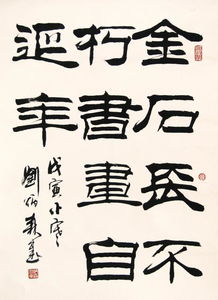 金石長不
朽書畫自
延年
戊寅小寒
劉炳森